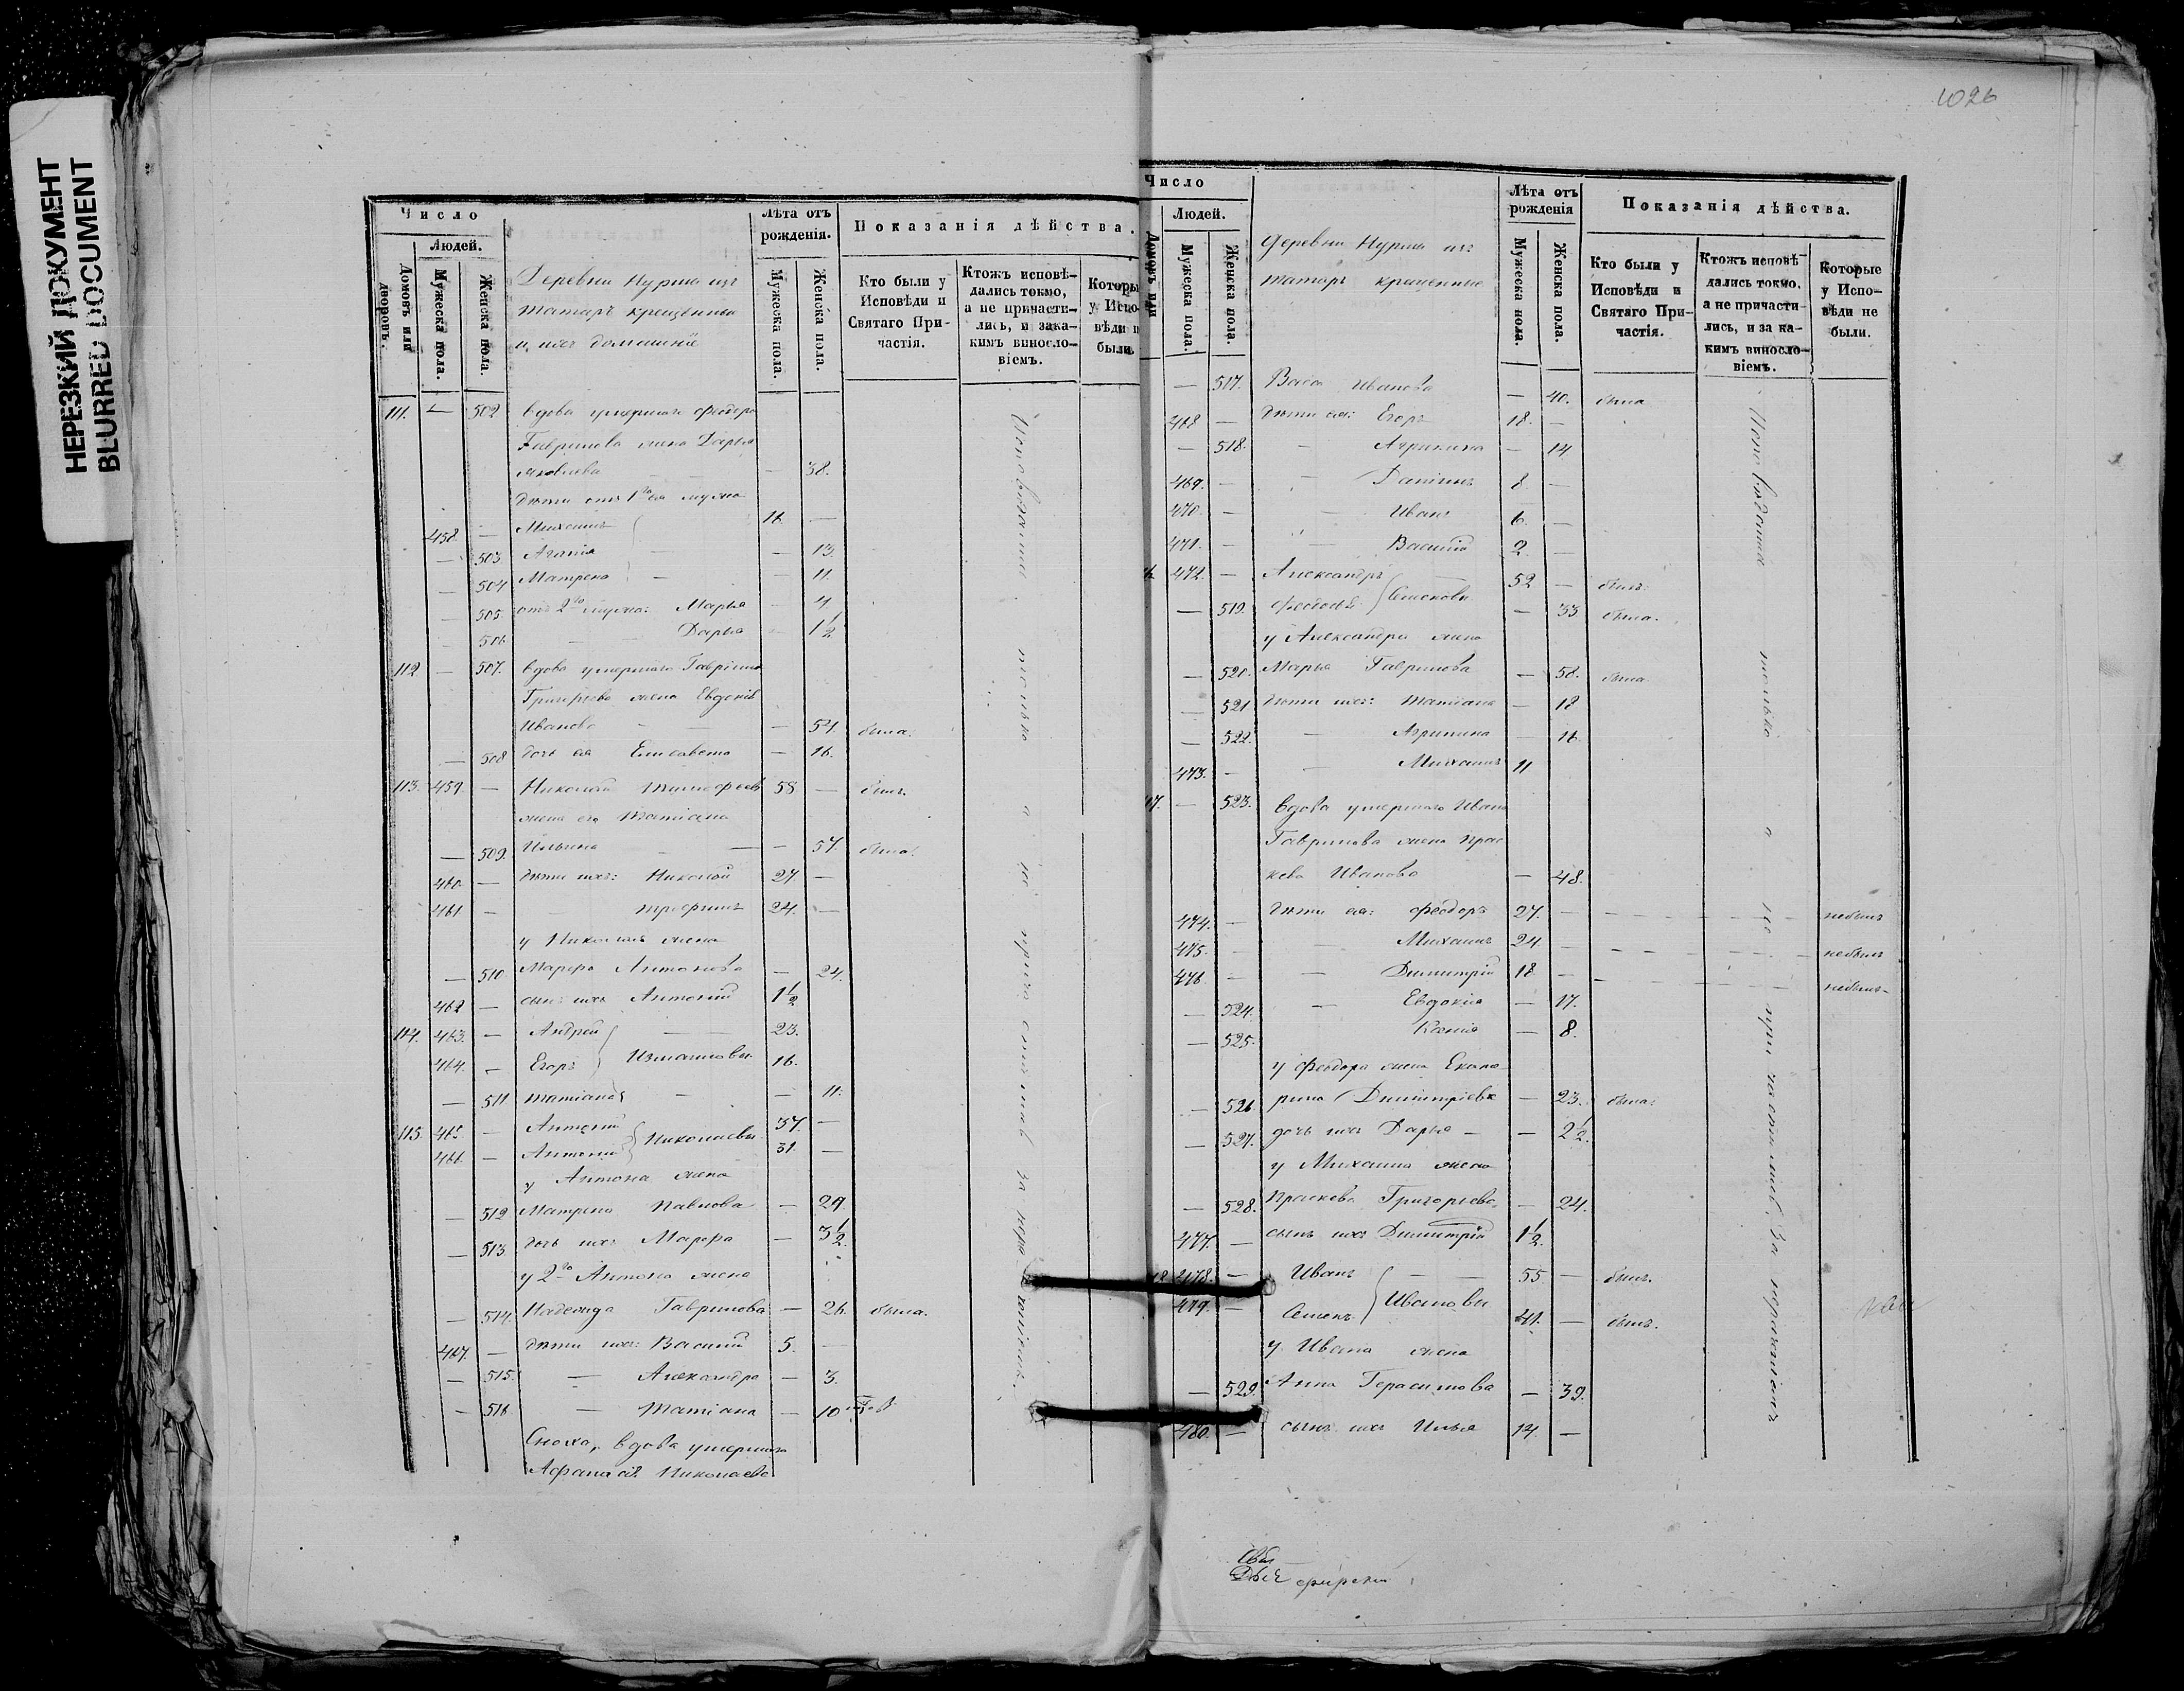 НЕРЕЗКИЙ ДОКУМЕНТ
BLURRED DOCUMENT
1026
Число
Людей.
Домовъ или дворовъ.
Мужеска пола.
Женска пола.
Деревни Нурмы изъ
татаръ крещенные
и ихъ домашніе
Лѣта отъ рожденія.
Мужеска пола.
Женска пола.
Показанія дѣйства.
Кто были у Исповѣди и Святаго Причастія.
Ктожъ исповѣдались токмо, а не причастились, и за какимъ винословіемъ.
Которы у Испо- вѣди н были.
111. — 502 вдова умершаго Феодора
Гаврилова жена Дарья
Яковлева — 38.
дѣти отъ 1го ея мужа
458. — Михаилъ 16 —
— 503. Агапія — 13.
— 504 Матрена — 11.
— 505. отъ 2го мужа: Марья — 4
— 506 Дарья — 1½
112 — 507. вдова умершаго Гавріила
Григорьева жена Евдокія
Иванова — 54 была.
— 508 дочь ея Елисавета — 16.
113. 459. — Николай Тимофеевъ 58 — былъ.
жена его Татіана
— 509. Ильина — 57. была.
460 — дѣти ихъ: Николай 27. —
461 — Трофимъ 24. —
у Николая жена
— 510 Марфа Антонова — 24.
462 — сынъ ихъ Антоній 1½
114. 463. — Андрей 23.
464. — Егоръ Измаиловы 16.
— 511 Татіана — 11.
115. 465. — Антоній Николаевы 37. —
466 — Антоній 31 —
у Антона жена
— 512 Матрена Павлова — 29.
— 513 дочь ихъ Марфа — 3½.
у 2го Антона жена
— 514. Надежда Гаврилова — 26. была.
467. — дѣти ихъ: Василій 5. —
— 515. — Александра — 3.
— 516 — Татіана — 10
Сноха, вдова умершаго
Афанасія Николаева
Исповѣдались только а не причастились за нерачениемъ.
Число
Людей.
Домовъ или
Мужеска пола.
Женска пола.
Деревни Нурмы изъ
татаръ крещенные
Лѣта отъ рожденія
Мужеска пола.
Женска пола.
Показанія дѣйства.
Кто были у Исповѣди и Святаго Причастія.
Ктожъ исповѣдались токмо, а не причастились, и за какимъ винословіемъ.
Которые у Исповѣди не были.
— 517. Васса Иванова — 40. была
468 — дѣти ея: Егоръ 18. —
— 518. — Агрипина — 14
469. — Даніилъ 8 —
470. — Иванъ 6. —
471. — Василій 2. —
6. 472. — Александръ 52 — былъ.
— 519. Феодосія Семеновы — 33. была.
у Александра жена
— 520. Марья Гаврилова — 58. была
— 521 дѣти ихъ: Татіана — 18
— 522. — Агрипина — 16.
473. — Михаилъ 11
17. — 523. вдова умершаго Ивана
Гаврилова жена Прас
кева Иванова — 48.
474. — дѣти ея: Феодоръ 27. — небылъ
475. — Михаилъ 24. — небылъ
476 — Димитрій 18 — небылъ
— 524. — Евдокія — 17.
— 525. Ксенія — 8.
у Феодора жена Екате
— 526. рина Димитріева — 23. была.
— 527. дочь ихъ Дарья — 2½.
у Михаила жена
— 528. Праскева Григорьева — 24.
477. — сынъ ихъ Димитрій 1½.
18 478. — Иванъ 55 — былъ.
479. — Семенъ Ивановы 41. — былъ.
у Ивана жена
— 529. Анна Герасимова — 39.
480. — сынъ ихъ Илья 14 —
Исповѣдались только а не причастились за нераченіемъ